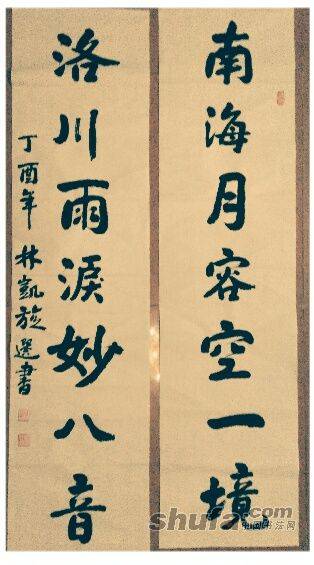 南海月容空一境
洛川雨淚妙八音
丁酉年 林凱旋選書
shufa.com
中国书法网